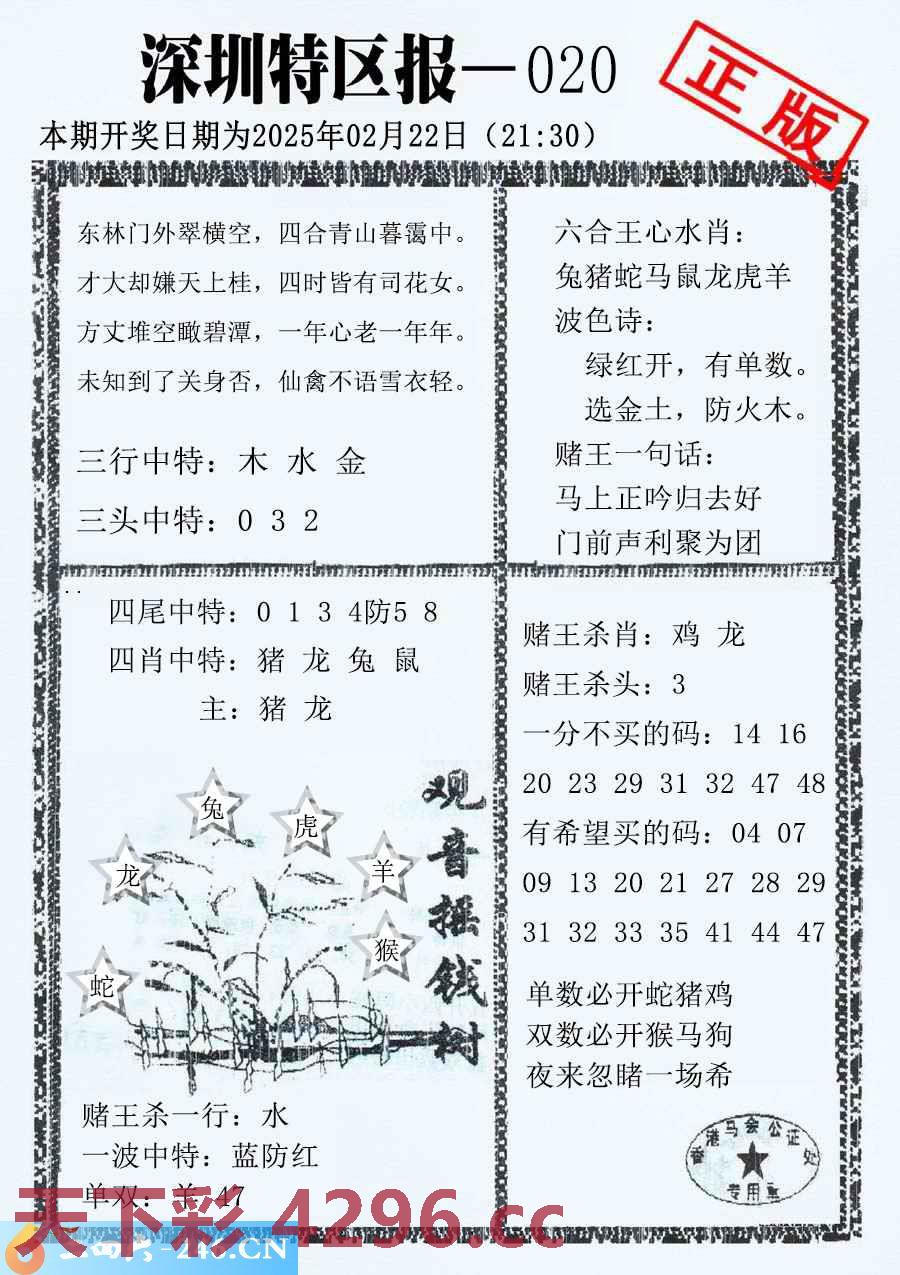 深圳特区报—020
正版
本期开奖日期为2025年02月22日（21:30）
东林门外翠横空，四合青山暮霭中。
才大却嫌天上桂，四时皆有司花女。
方丈堆空瞰碧潭，一年心老一年年。
未知到了关身否，仙禽不语雪衣轻。
三行中特：木 水 金
三头中特：0 3 2
六合王心水肖：
兔猪蛇马鼠龙虎羊
波色诗：
绿红开，有单数。
选金土，防火木。
赌王一句话：
马上正吟归去好
门前声利聚为团
四尾中特：0 1 3 4防5 8
四肖中特：猪 龙 兔 鼠
主：猪 龙
兔
虎
龙
羊
猴
蛇
观音摇钱树
赌王杀一行：水
一波中特：蓝防红
单双：羊 47
赌王杀肖：鸡 龙
赌王杀头：3
一分不买的码：14 16
20 23 29 31 32 47 48
有希望买的码：04 07
09 13 20 21 27 28 29
31 32 33 35 41 44 47
单数必开蛇猪鸡
双数必开猴马狗
夜来忽睹一场希
香港马会公证处
专用章
天下彩 4296.cc
246.CN